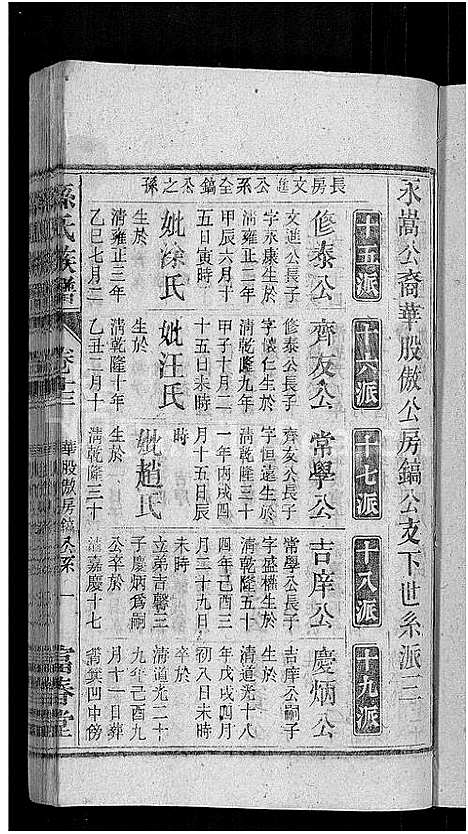 永嵩公裔華股傲公房鎬公支下世系派三
十五派
十六派
十七派
十八派
十九派
長房文進公系全鎬公之孫
修泰公
文進公長子
字永康生於
清雍正二年
甲辰六月十
五日寅時
妣涂氏
生於
清雍正三年
乙巳七月二
齊友公
修泰公長子
字懷仁生於
清乾隆九年
甲子十月二
十五日未時
妣汪氏
生於
清乾隆十年
乙丑二月十
常學公
齊友公長子
字恒遠生於
清乾隆三十
一年丙戌四
月十五日辰
時
妣趙氏
生於
清乾隆三十
吉庠公
常學公長子
字盛權生於
清乾隆五十
四年己酉三
月二十九日
未時
立弟吉馨三
子慶炳爲嗣
公卒於
清嘉慶十七
慶炳公
吉庠公嗣子
生於
清道光十八
年戊戌四月
初八日未時
卒於
清道光二十
九年己酉九
月十一日葬
凹中傍
孫氏族譜
卷十三
華股傲房鎬公系
一
富春堂